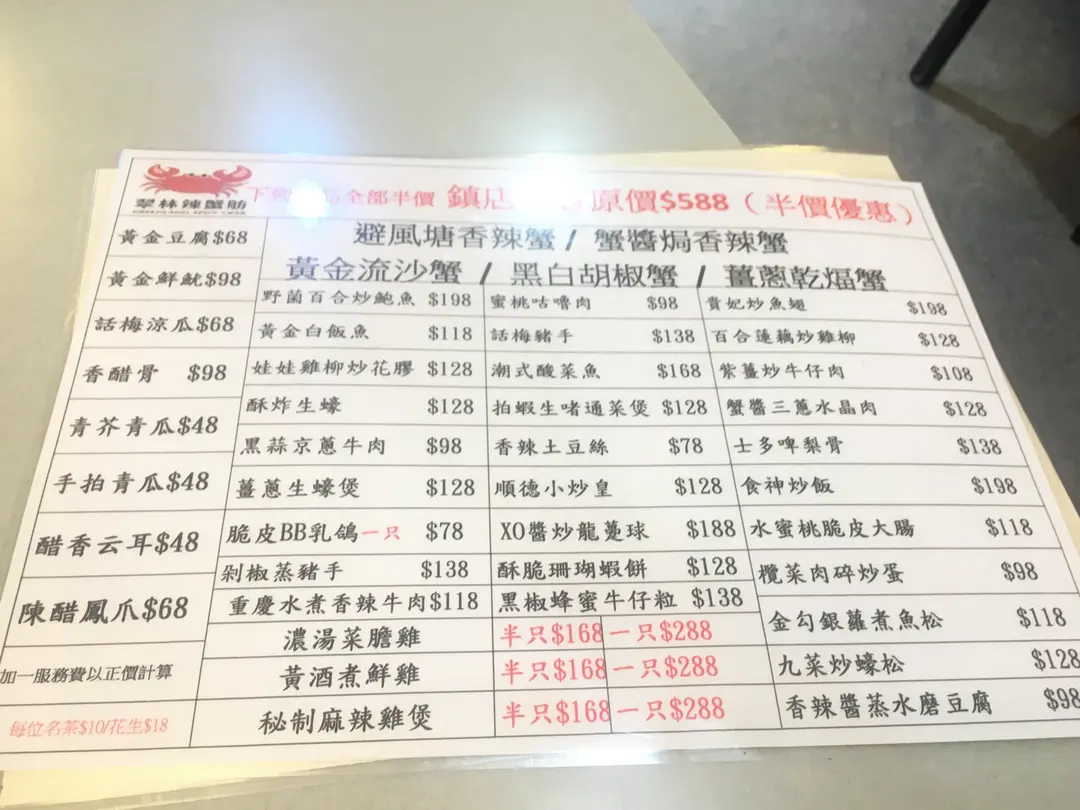 翠林辣蟹舫
GREENLAND SPICY CRAB
下列 全部半價 鎮店 原價$588（半價優惠）
避風塘香辣蟹 / 蟹醬焗香辣蟹
黃金流沙蟹 / 黑白胡椒蟹 / 薑蔥乾煏蟹
黃金豆腐$68
黃金鮮魷$98
話梅涼瓜$68
香醋骨 $98
青芥青瓜$48
手拍青瓜$48
醋香云耳$48
陳醋鳳爪$68
加一服務費以正價計算
每位名茶$10/花生$18
野菌百合炒鮑魚 $198
黃金白飯魚 $118
娃娃雞柳炒花膠 $128
酥炸生蠔 $128
黑蒜京蔥牛肉 $98
薑蔥生蠔煲 $128
脆皮BB乳鴿一只 $78
剁椒蒸豬手 $138
重慶水煮香辣牛肉$118
蜜桃咕嚕肉 $98
話梅豬手 $138
潮式酸菜魚 $168
拍蝦生啫通菜煲 $128
香辣土豆絲 $78
順德小炒皇 $128
XO醬炒龍躉球 $188
酥脆珊瑚蝦餅 $128
黑椒蜂蜜牛仔粒 $138
濃湯菜膽雞 半只$168 一只$288
黃酒煮鮮雞 半只$168 一只$288
秘制麻辣雞煲 半只$168 一只$288
貴妃炒魚翅 $198
百合蓮藕炒雞柳 $128
紫薑炒牛仔肉 $108
蟹醬三蔥水晶肉 $128
士多啤梨骨 $138
食神炒飯 $198
水蜜桃脆皮大腸 $118
欖菜肉碎炒蛋 $98
金勾銀蘿煮魚松 $118
九菜炒蠔松 $128
香辣醬蒸水磨豆腐 $98